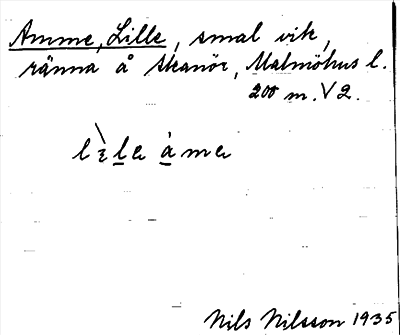 Amme, Lille, smal vik,
ränna å Skanör, Malmöhus l.
200 m. V 2.
Nils Nilsson 1935